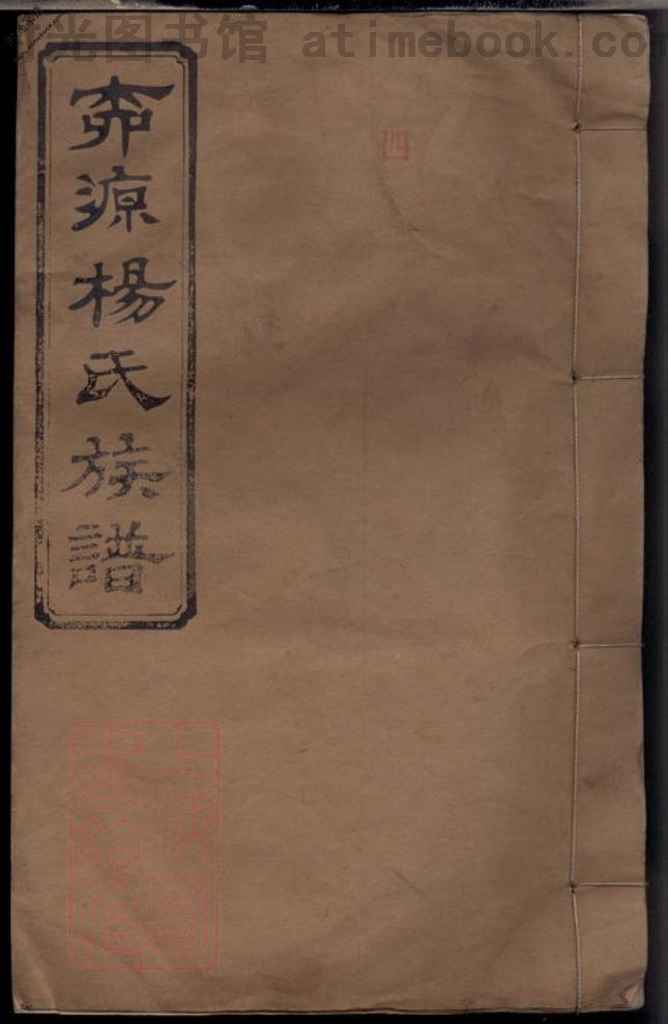 光图书馆 atimebook.co
四
奅源楊氏族譜